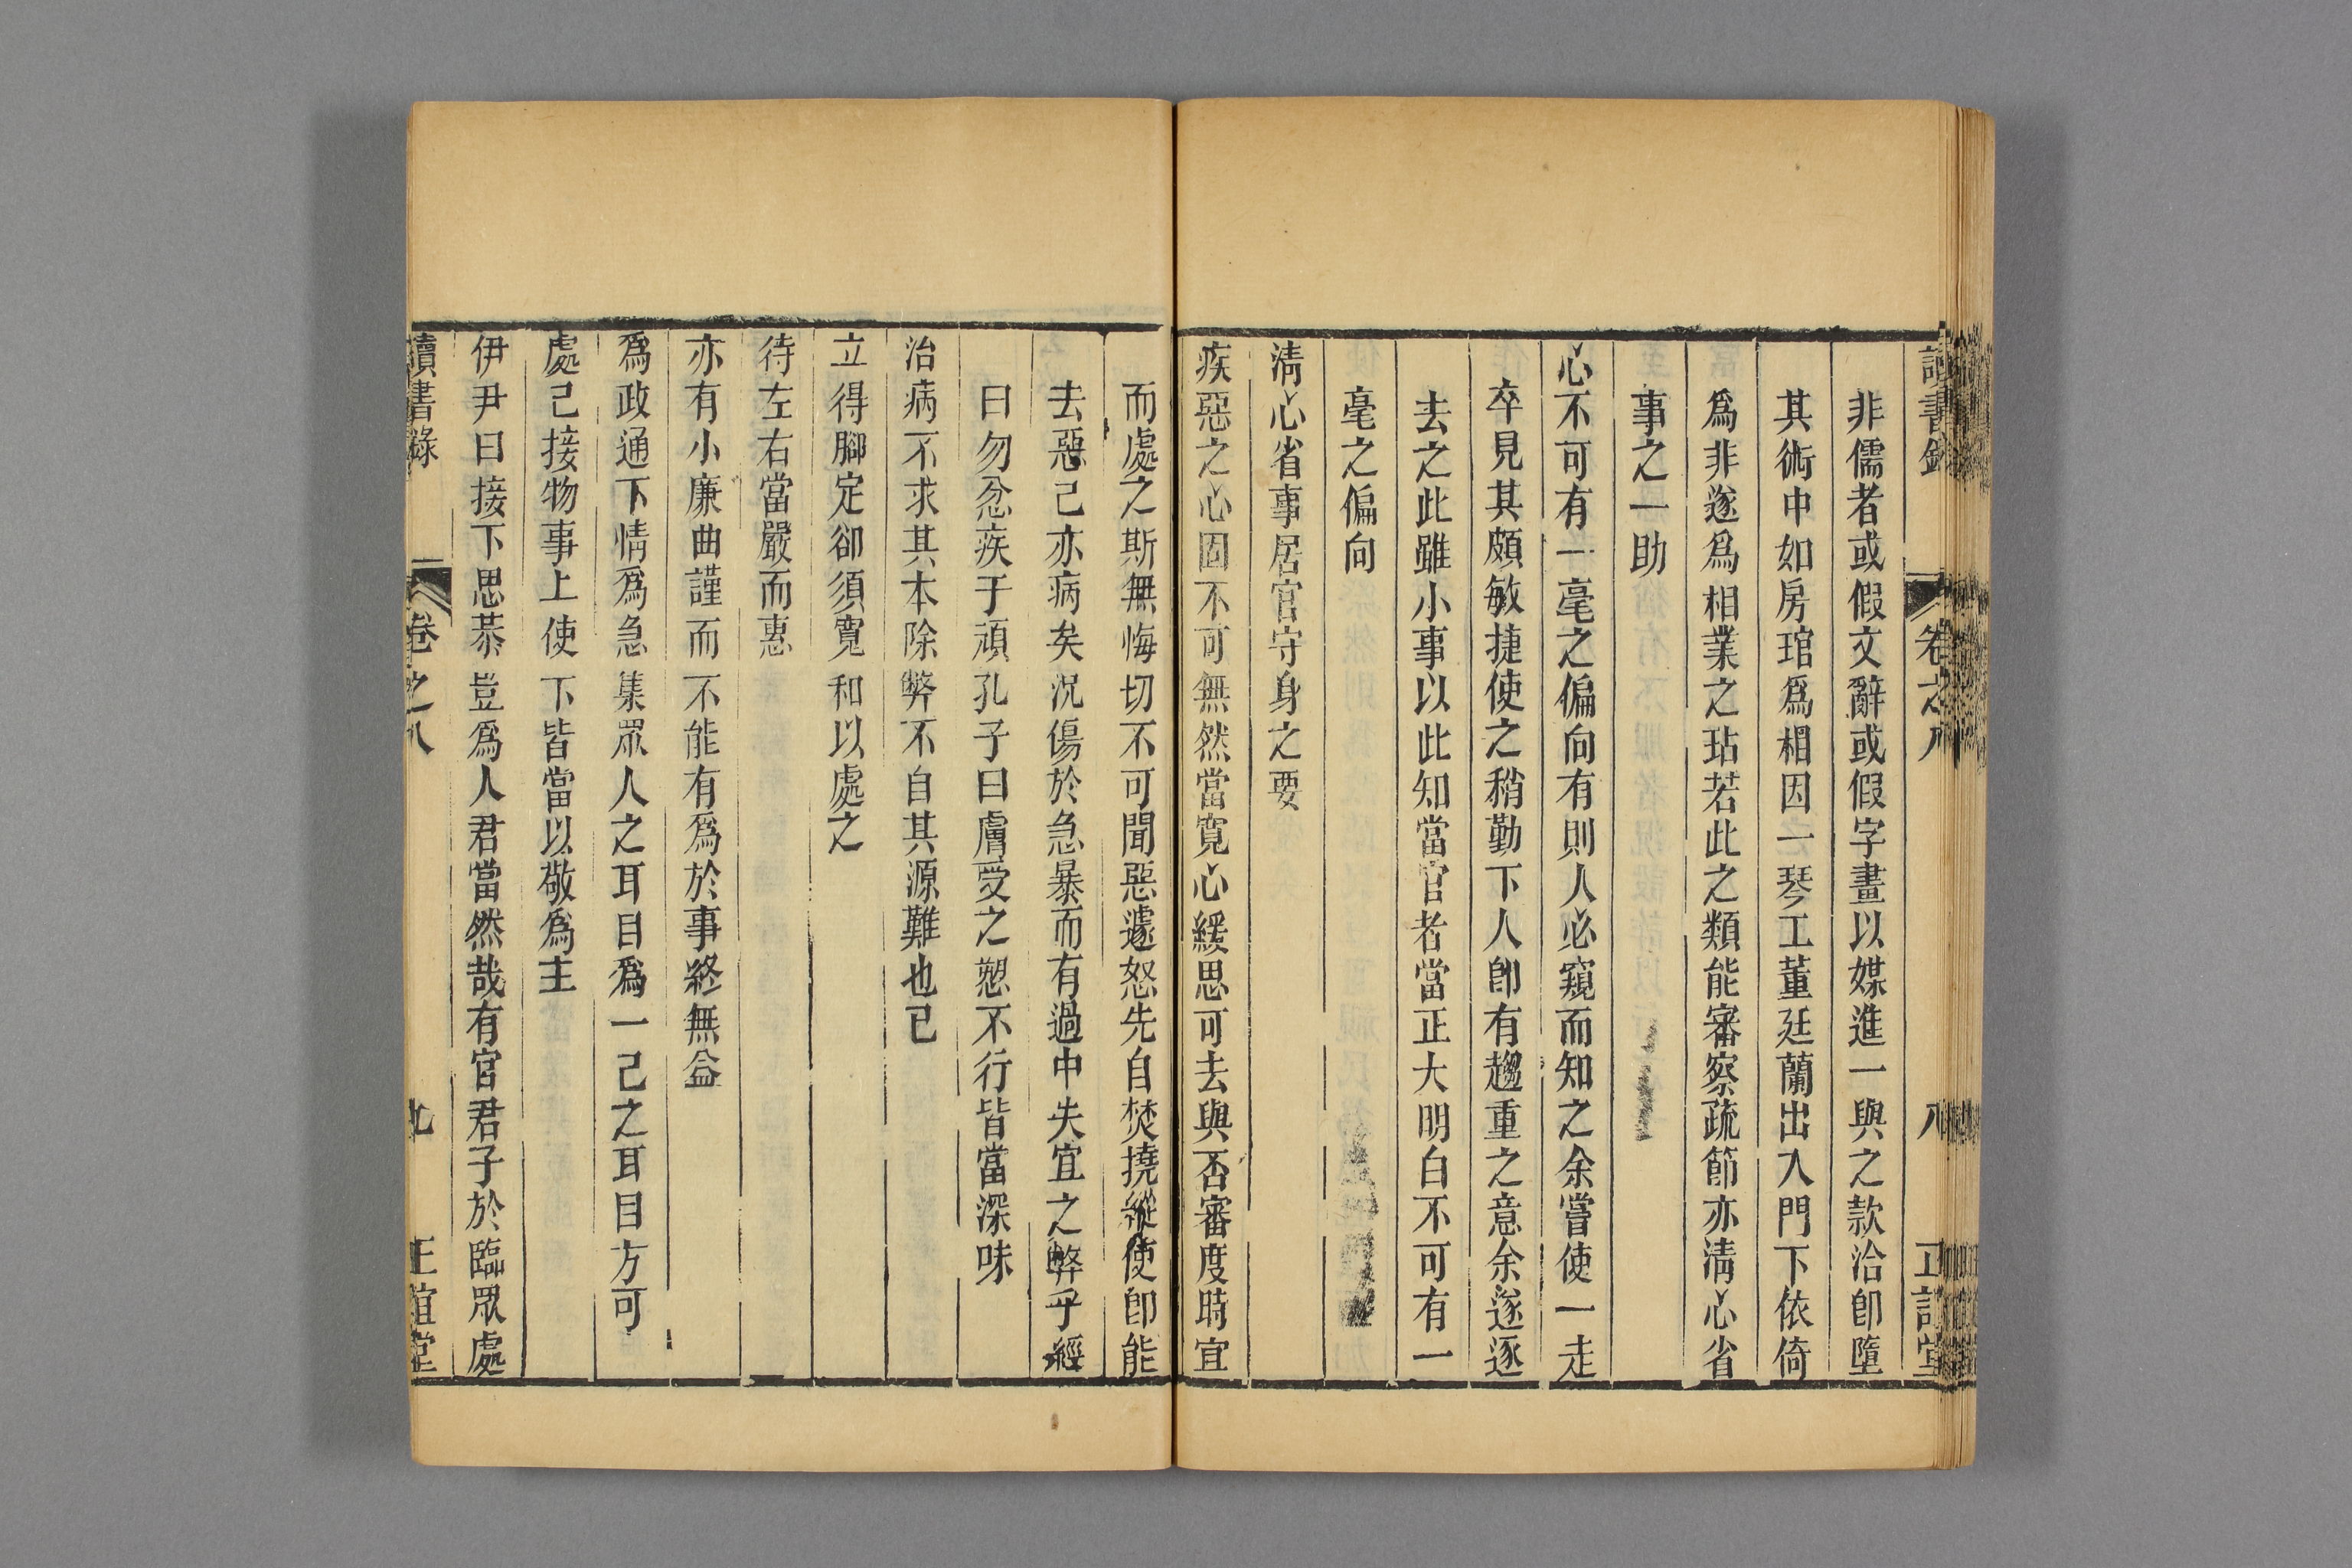 讀書錄 卷之八 八 正誼堂
非儒者或假文辭或假字畫以媒進一與之款洽卽墮
其術中如房琯爲相因一琴工董廷蘭出入門下依倚
爲非遂爲相業之玷若此之類能審察疏節亦淸心省
事之一助
心不可有一毫之偏向有則人必窺而知之余嘗使一走
卒見其頗敏捷使之稍勤下人卽有趨重之意余遂逐
去之此雖小事以此知當官者當正大明白不可有一
毫之偏向
淸心省事居官守身之要
疾惡之心固不可無然當寬心緩思可去與否審度時宜
而處之斯無悔切不可聞惡遽怒先自焚撓縱使卽能
去惡己亦病矣況傷於急暴而有過中失宜之弊乎經
曰勿忿疾于頑孔子曰膚受之愬不行皆當深味
治病不求其本除弊不自其源難也已
立得腳定卻須寬和以處之
待左右當嚴而惠
亦有小廉曲謹而不能有爲於事終無益
爲政通下情爲急集眾人之耳目爲一己之耳目方可
處己接物事上使下皆當以敬爲主
伊尹曰接下思恭豈爲人君當然哉有官君子於臨眾處
讀書錄 卷之八 九 正誼堂